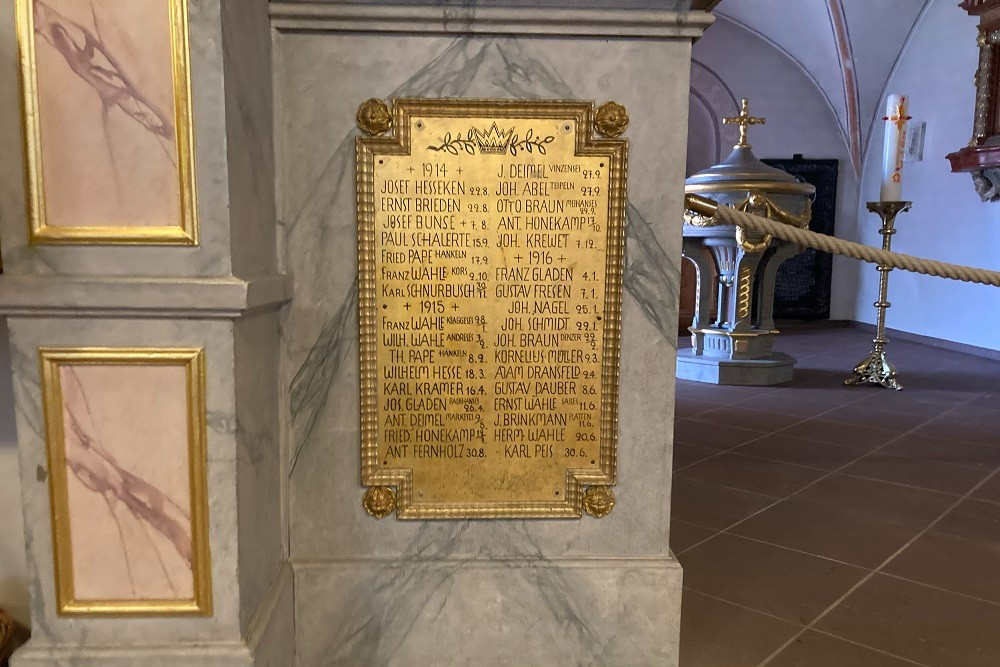 + 1914 +
JOSEF HESSEKEN 22.8.
ERNST BRIEDEN 29.8.
JOSEF BUNSE + 7.8.
PAUL SCHALERTE 15.9.
FRIED PAPE HANKELN 17.9.
FRANZ WAHLE KORS 9.10.
KARL SCHNURBUSCH 30/11.
+ 1915 +
FRANZ WAHLE KLAGGESES
WILH. WAHLE ANDRELES
TH. PAPE HANKELN 8.2.
WILHELM HESSE 18.3.
KARL KRAMER 16.4.
JOS. GLADEN BACKHANSES 26.4.
ANT. DEIMEL MARKELES
FRIED. HONEKAMP
ANT FERNHOLZ 30.8.
J. DEIMEL VINZENSES 27.9.
JOH. ABEL TEIPELN 27.9.
OTTO BRAUN MÜHANSES 29.9.
ANT. HONEKAMP 17/10.
JOH. KREWET 7.12.
+ 1916 +
FRANZ GLADEN 4.1.
GUSTAV FRESEN 7.1.
JOH. NAGEL 25.1.
JOH. SCHMIDT 29.1.
JOH. BRAUN DENZER
KORNELIUS MÜLLER 9.3.
ADAM DRANSFELD 9.4.
GUSTAV DAUBER 8.6.
ERNST WAHLE SALLES 11.6.
J. BRINKMANN PLATTEN 11.6.
HERM. WAHLE 20.6.
KARL PEIS 30.6.